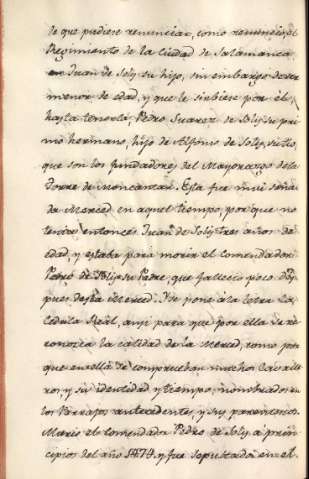 le que pudiese renunciar, como renunció, el
Regimiento de la Ciudad de Salamanca
en Juan de Solis su hijo, sin embargo de ser
menor de edad, y que le sirbiese por el,
hasta tenerla, Pedro Suarez de Solis su pri
mo hermano, hijo de Alfonso de Solis, su tio,
que son los fundadores del Mayorazgo de la
Torre de Moncantar. Esta fue mui señala
da Merced en aquel tiempo, por que no
tenia entonces Juan de Solis tres años de
edad, y estaba para morir el Comendador
Pedro de Solis su Padre, que fallecio poco des
pues de esta Merced. Y se pone a la letra la
Cedula Real, assi para que por ella se re
conozca la calidad de la Merced, como por
que en ella se comprueban muchos Cavalle
ros, y su identidad y tiempo, nombrados en
los Parrafos antecedentes, y sus parentescos.
Murio el Comendador Pedro de Solis a prin
cipios del año 1474. y fue sepultado en el